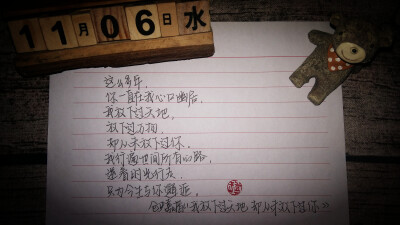 11月06日水
这么多年，
你一直在我心口幽居，
我放下过天地，
放下过万物，
却从未放下过你，
我行遍世间所有的路，
逆着时光行走，
只为今生与你邂逅。
《我放下过天地 却从未放下过你》